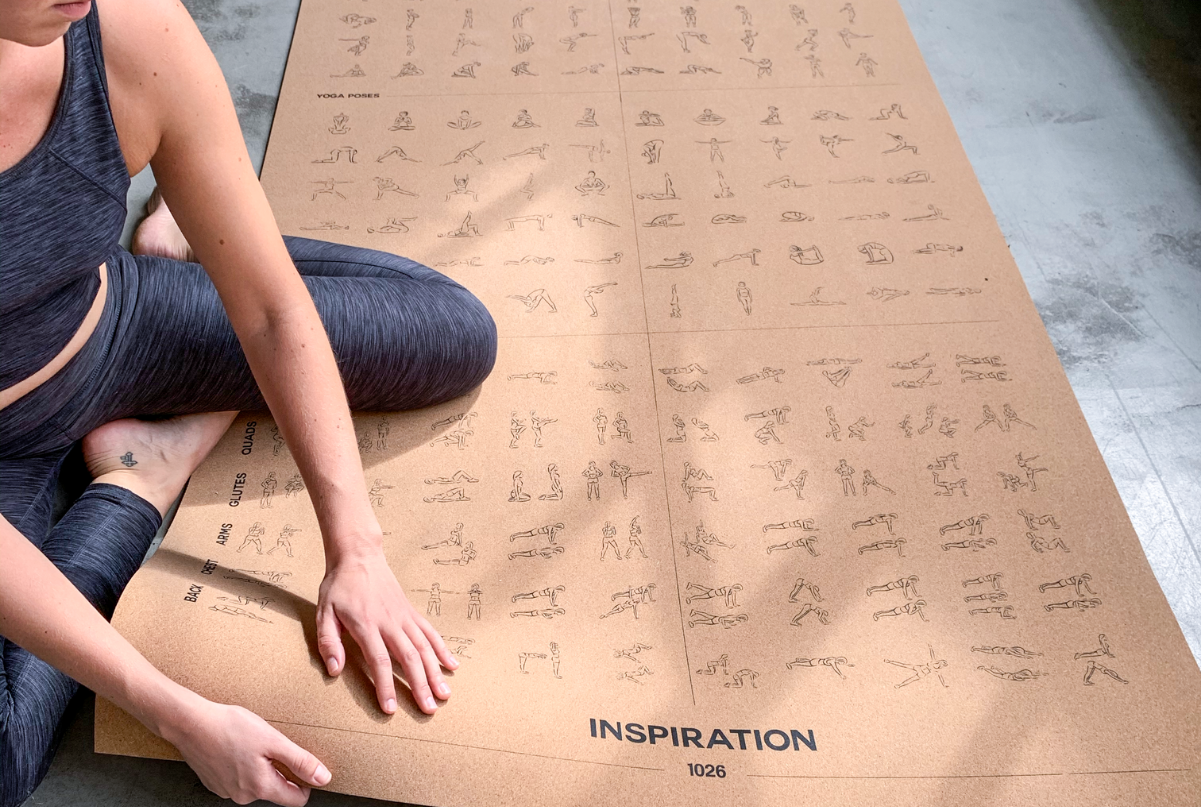 YOGA POSES
QUADS
GLUTES
ARMS
BACK
INSPIRATION
1026